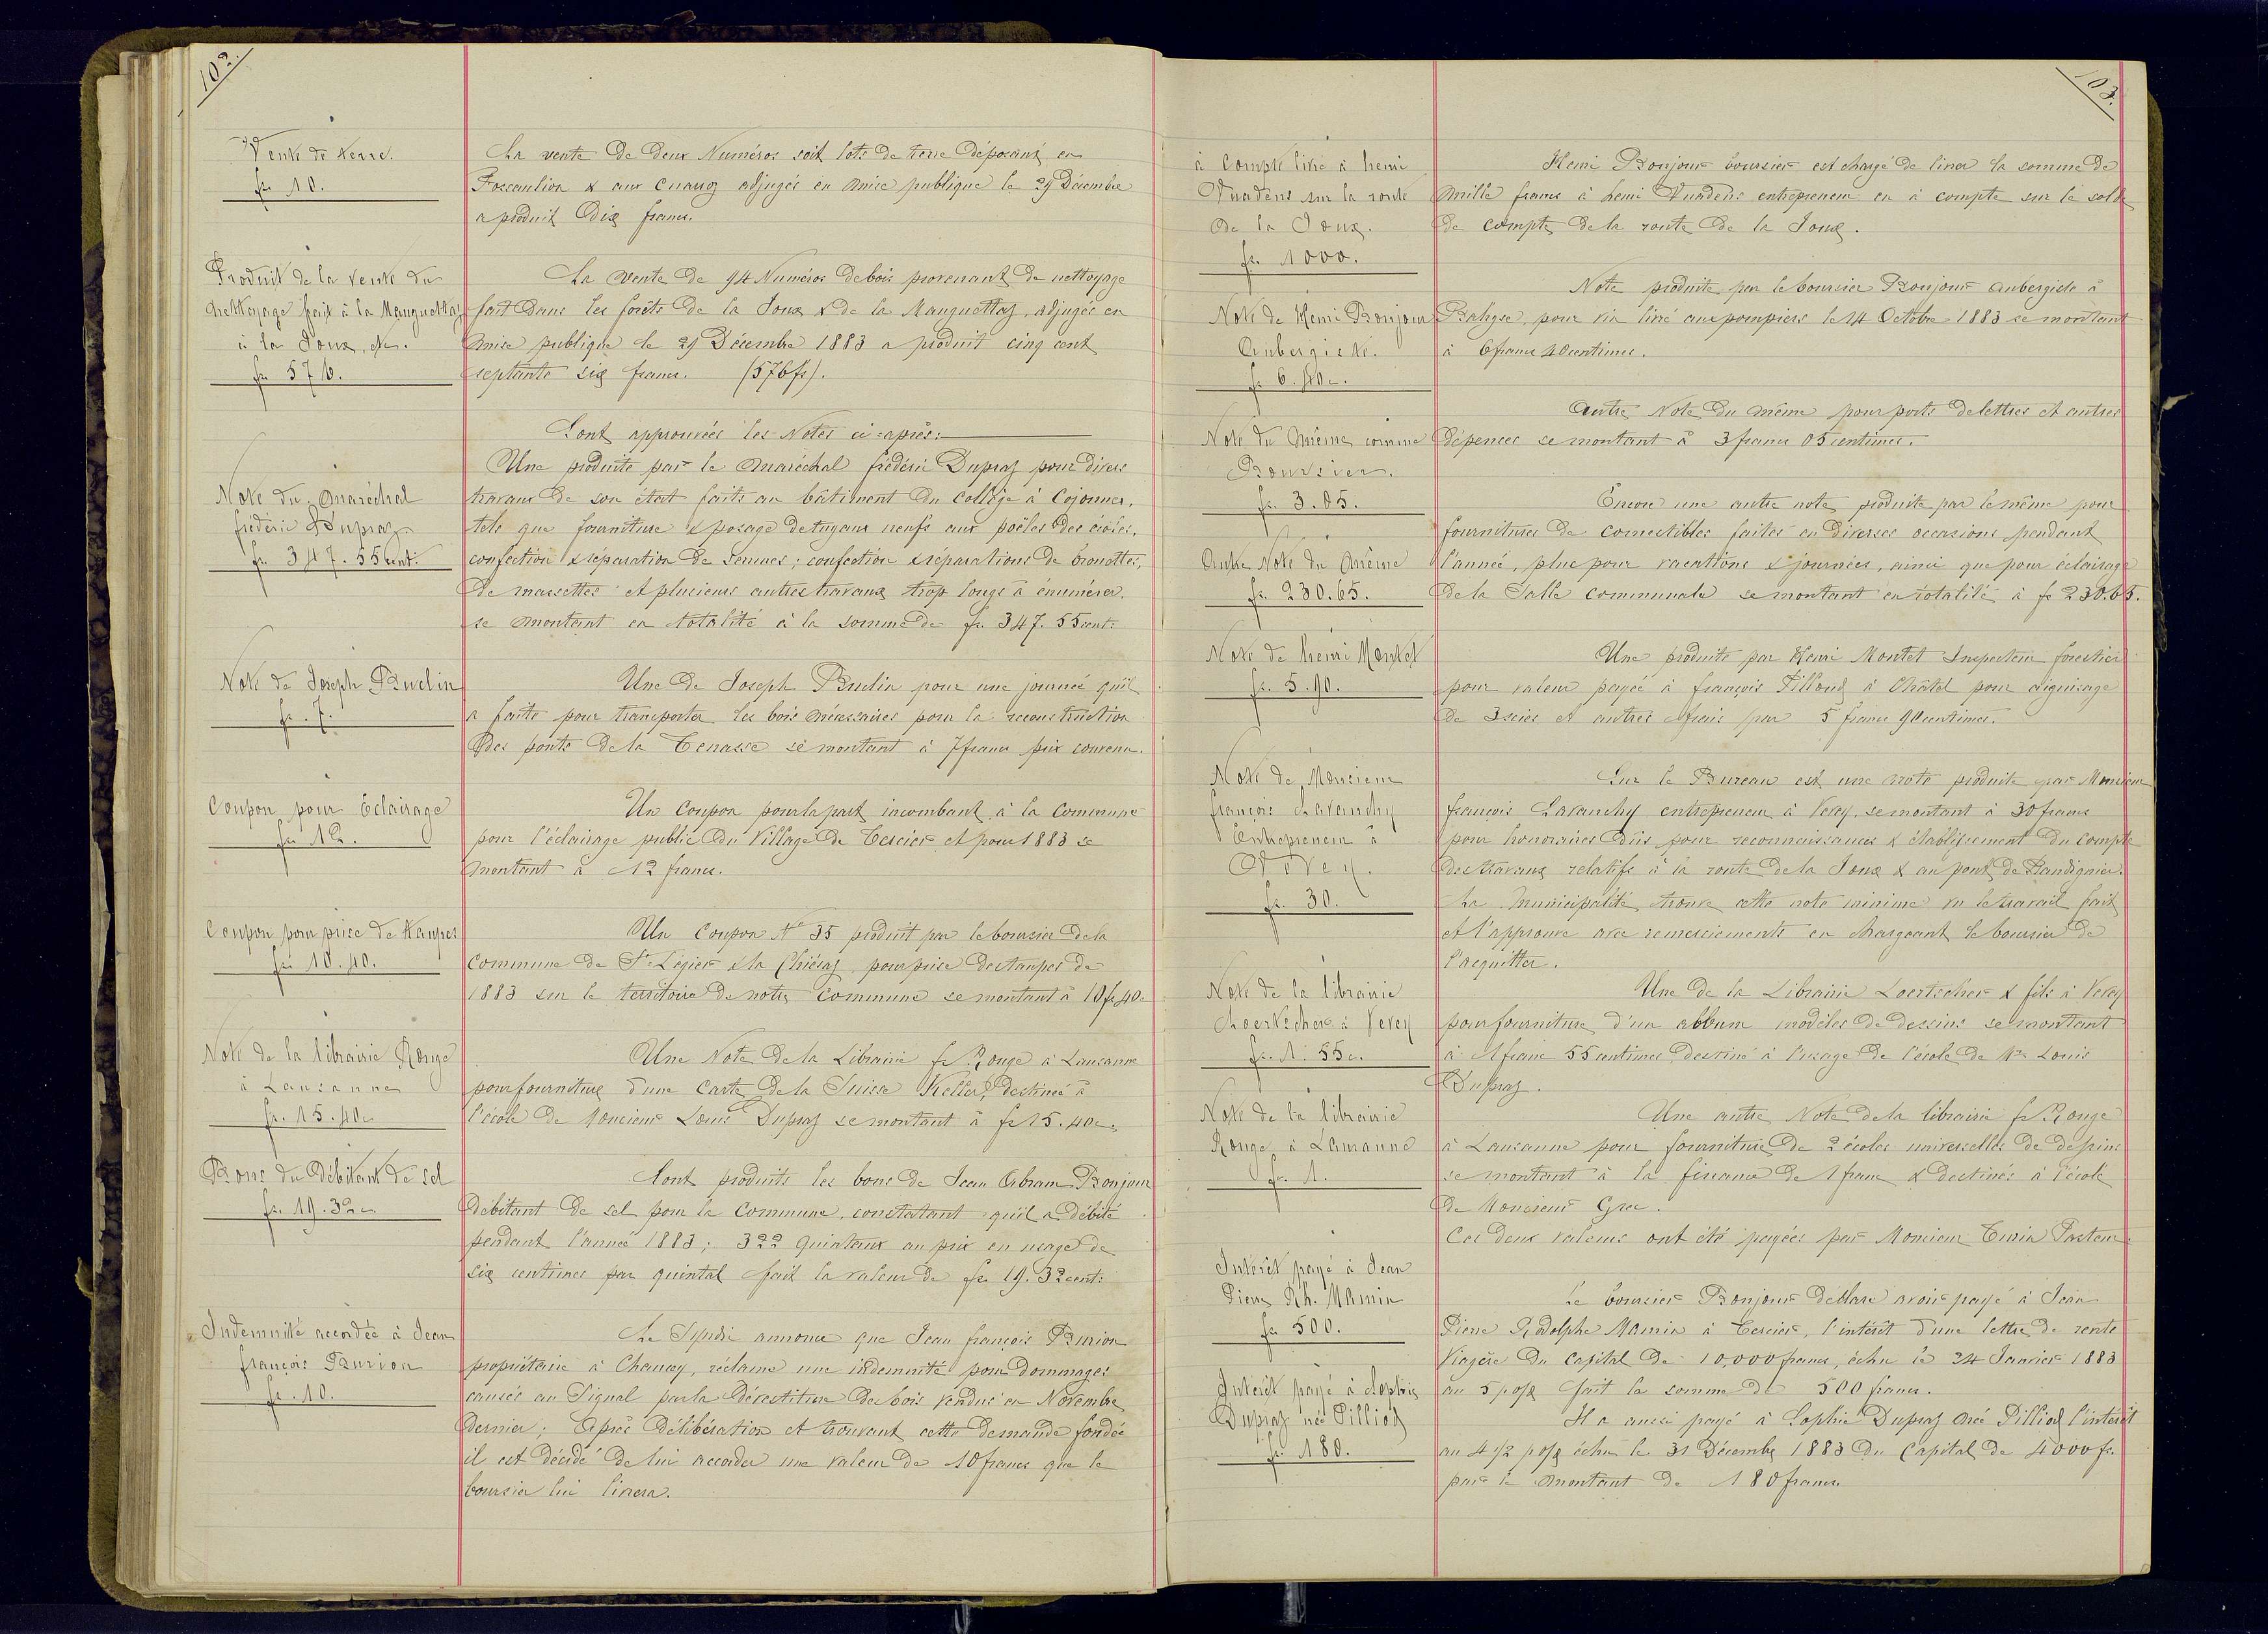 102.
Vente de terre.
fr. 10.
La vente de deux Numéros soit lots de terre déposant en
& aux adjugés en mise publique le 29 Décembre
a produit dix francs.
Produit de la vente du
nettoyage fait à la Manguettaz
à la Joux, &c.
fr. 576.
La vente de 94 Numéros de bois provenant de nettoyage
fait dans les forêts de la Joux & de la Manguettaz, adjugés en
mise publique le 29 Décembre 1883 a produit cinq cent
septante six francs. (576 fr).
Sont approuvées les Notes ci-après:
Note du maréchal
frédéric Dupraz
fr. 347. 55 cent:
Une produite par le maréchal frédéric Dupraz pour divers
travaux de son état faits au bâtiment du collège à Cojonnex,
tels que fourniture & posage de tuyaux neufs aux poêles des écoles,
confection & réparation de ; confection & réparations de brouettes,
de massettes et plusieurs autres travaux trop longs à énumérer.
se montant en totalité à la somme de fr. 347. 55 cent:
Note de Joseph Buclin
fr. 7.
Une de Joseph Buclin pour une journée qu'il
a faite pour transporter les bois nécessaires pour la reconstruction
des ponts de la Tenasse se montant à 7 francs prix convenu.
Coupon pour Eclairage
fr. 12.
Un Coupon pour la part incombant à la Commune
pour l'éclairage public du Village de Tercier et pour 1883 se
montant à 12 francs.
Coupon pour prise de taupes
fr. 10. 40.
Un Coupon N° 35 produit par le boursier de la
commune de St. Légier & la Chiésaz pour prise des taupes de
1883 sur le territoire de notre commune se montant à 10 fr 40c
Note de la librairie Rouge
à Lausanne
fr. 15. 40c
Une Note de la Librairie fs Rouge à Lausanne
pour fourniture d'une Carte de la Suisse Keller, destinée à
l'école de Monsieur Louis Dupraz se montant à fr 15. 40c.
Bons du Débitant de sel
fr. 19. 32c
Sont produits les bons de Jean Abram Bonjour
Débitant de sel pour la Commune, constatant qu'il a débité
pendant l'année 1883; 322 quintaux au prix en usage de
six centimes par quintal fait la valeur de fr. 19. 32 cent:
Indemnité accordée à Jean
françois Burion
fr. 10.
Le Syndic annonce que Jean françois Burion
propriétaire à Chaucey, réclame une indemnité pour dommages
causés au Signal par la dévestiture des bois vendus en Novembre
dernier; Après délibération et trouvant cette demande fondée
il est décidé de lui accorder une valeur de 10 francs que le
boursier lui livrera.
103.
à Compte livré à henri
Vuadens sur la route
de la Joux.
fr. 1000.
Henri Bonjour boursier est chargé de livrer la somme de
mille francs à henri Vuadens entrepreneur en à compte sur le solde
de compte de la route de la Joux.
Note de Henri Bonjour
Aubergiste.
fr 6. 40c.
Note produite par le boursier Bonjour aubergiste à
, pour vin livré aux pompiers le 14 Octobre 1883 se montant
à 6 francs 40 centimes.
Note du même comme
Boursier.
fr. 3. 05.
Autre Note du même pour ports de lettres et autres
dépenses se montant à 3 francs 05 centimes.
Autre Note du même
fr. 230. 65.
Encore une autre note produite par le même pour
fournitures de comestibles faites en diverses occasions pendant
l'année, plus pour vacations & journées, ainsi que pour éclairage
de la Salle communale se montant en totalité à fr 230. 65.
Note de henri Montet
fr. 5. 90.
Une produite par Henri Montet Inspecteur forestier
pour valeur payée à françois Pilloud à Châtel pour aiguisage
de 3 scies et autres frais par 5 francs 90 centimes.
Note de Monsieur
françois Lavanchy
Entrepreneur à
Vevey.
fr. 30.
Sur le Bureau est une note produite par Monsieur
françois Lavanchy entrepreneur à Vevey, se montant à 30 francs
pour honoraires dûs pour reconnaissances & établissement du compte
des travaux relatifs à la route de la Joux & au pont de Bandignier.
La Municipalité trouve cette note minime vu le travail fait
et l'approuve avec remerciements en chargeant le boursier de
l'acquitter.
Note de la librairie
Loertscher à Vevey
fr. 1. 55c.
Une de la Librairie Loertscher & fils à Vevey
pour fourniture d'un album modèles de dessins se montant
à 1 franc 55 centimes destiné à l'usage de l'école de Mr. Louis
Dupraz.
Note de la librairie
Rouge à Lausanne
fr. 1.
Une autre Note de la librairie fs Rouge
à Lausanne pour fourniture de 2 écoles universelles de dessins
se montant à la finance de 1 franc & destinés à l'école
de Monsieur Grec.
Ces deux valeurs ont été payées par Monsieur Turin Pasteur.
Intérêt payé à Jean
Pierre Rh. Mamin
fr 500.
Le boursier Bonjour déclare avoir payé à Jean
Pierre Rodolphe Mamin à Tercier, l'intérêt d'une lettre de rente
Viagère du Capital de 10,000 francs, échu le 24 Janvier 1883
au 5 p% fait la somme de 500 francs.
Intérêt payé à Sophie
Dupraz née Pilliod
fr. 180.
Il a aussi payé à Sophie Dupraz née Pilliod l'intérêt
au 4 1/2 p% échu le 31 Décembre 1883 du Capital de 4000 fr.
par le montant de 180 francs.